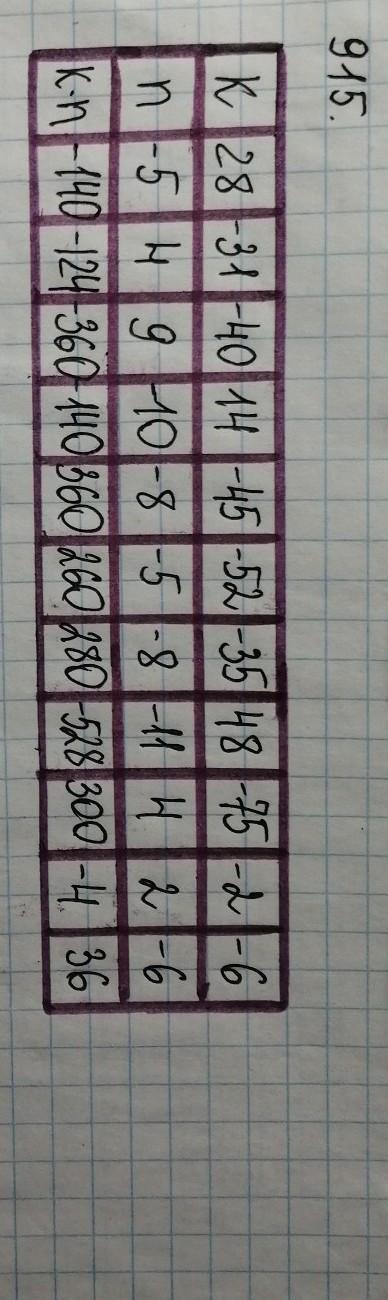 915.
k 28 -31 -40 14 -45 -52 -35 48 -75 -2 -6
n -5 4 9 -10 -8 -5 -8 -11 4 2 -6
k·n -140 -124 -360 -140 360 260 280 -528 300 -4 36